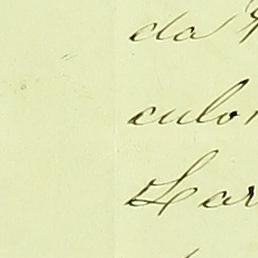 da
culo
Lar